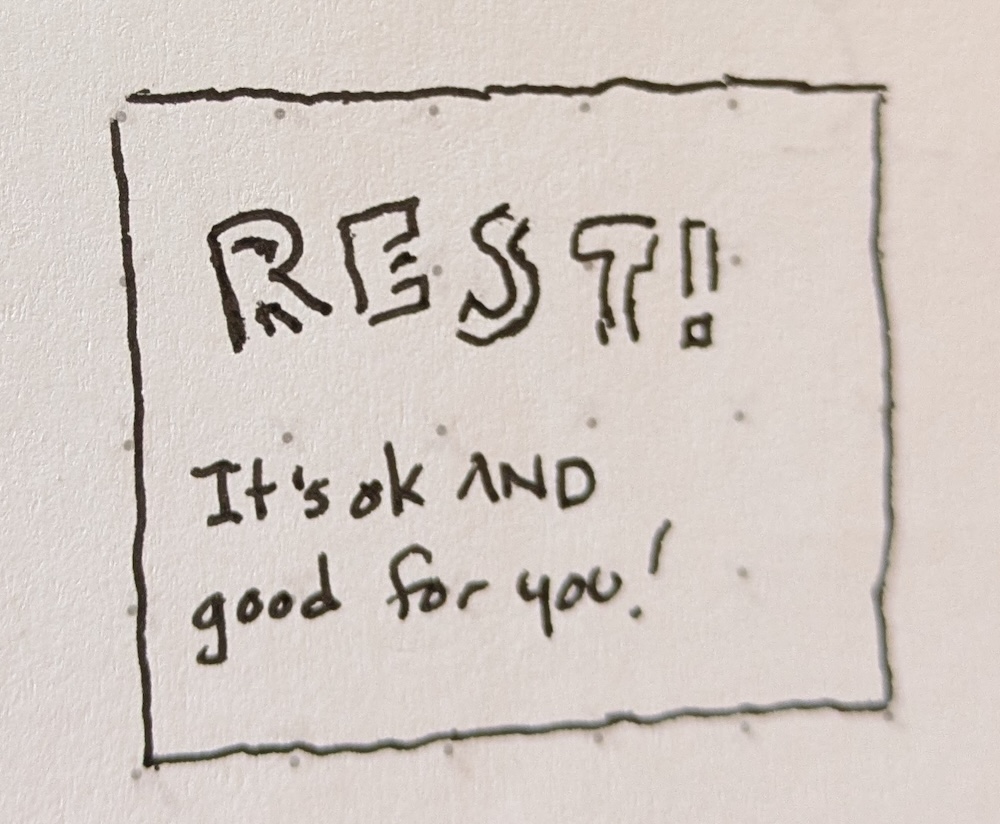 REST!
It's ok AND
good for you!